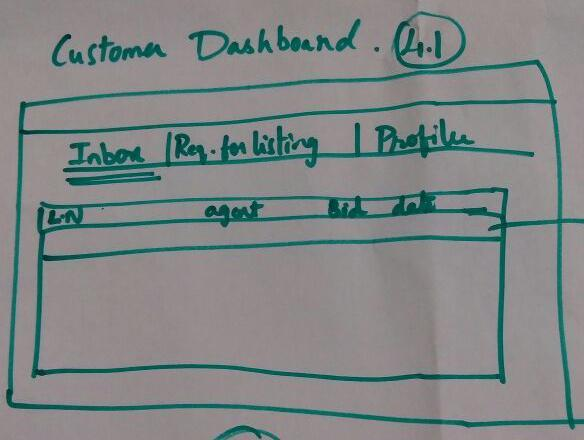 Customer Dashboard. 4.1
Inbox | Req. for listing | Profile
L.N agent Bid date